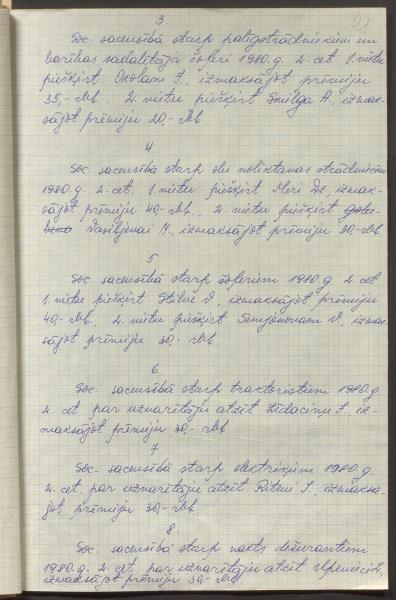 3.
Soc. sacensībā starp palīgstrādniekiem un
barības sadalītājā šoferi 1980.g. 2. cet. 1. vietu
piešķirt Ozolam J., izmaksājot prēmiju
35,- rbļ. 2. vietu piešķirt Smilga A., izmak-
sājot prēmiju 20,- rbļ.
4.
Soc. sacensībā starp noliktavas strādniecēm
1980.g. 2. cet. 1. vietu piešķirt Meri Dz., izmak-
sājot prēmiju 40,- rbļ., 2. vietu piešķirt
Vasiļjevai N., izmaksājot prēmiju 30,- rbļ.
5
Soc. sacensībā starp šoferiem 1980.g. 2. cet
1. vietu piešķirt V., izmaksājot prēmiju
40,- rbļ., 2. vietu piešķirt Semjonovam V., izmak-
sājot prēmiju 30,- rbļ
6
Soc. sacensībā starp traktoristiem 1980.g.
2. cet par uzvarētāju atzīt J., iz-
maksājot prēmiju 30,- rbļ
7
Soc. sacensībā starp elektriķiem 1980.g.
2. cet. par uzvarētāju atzīt Riteni J., izmaksā-
jot prēmiju 30,- rbļ.
8.
Soc. sacensībā starp nakts dežurantiem
1980.g. 2. cet. par uzvarētāju atzīt
izmaksājot prēmiju 30,- rbļ.